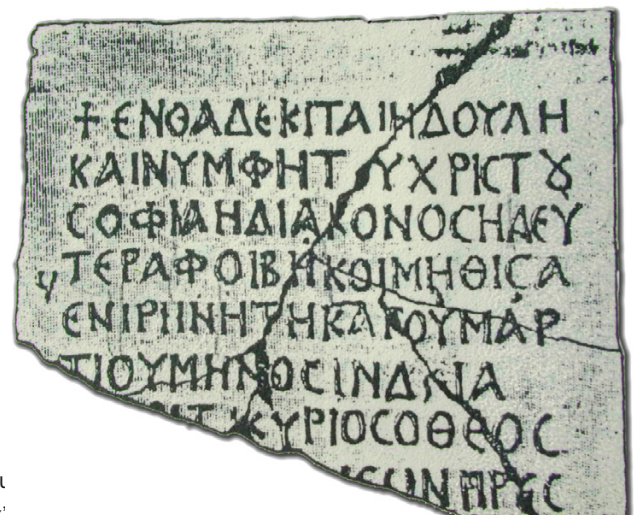 + ΕΝΘΑΔΕΚΙΤΑΙΗΔΟΥΛΗ
ΚΑΙΝΥΜΦΗΤΟΥΧΡΙϹΤȢ
ϹΟΦΙΑΗΔΙΑΚΟΝΟϹΗΔΕΥ
ΤΕΡΑΦΟΙΒΗΚΟΙΜΗΘΙϹΑ
ΕΝΙΡΗΝΗΤΗΚΑΤΟΥΜΑΡ
ΤΙΟΥΜΗΝΟϹΙΝΔΙΑ
ΚΥΡΙΟϹΟΘΕΟϹ